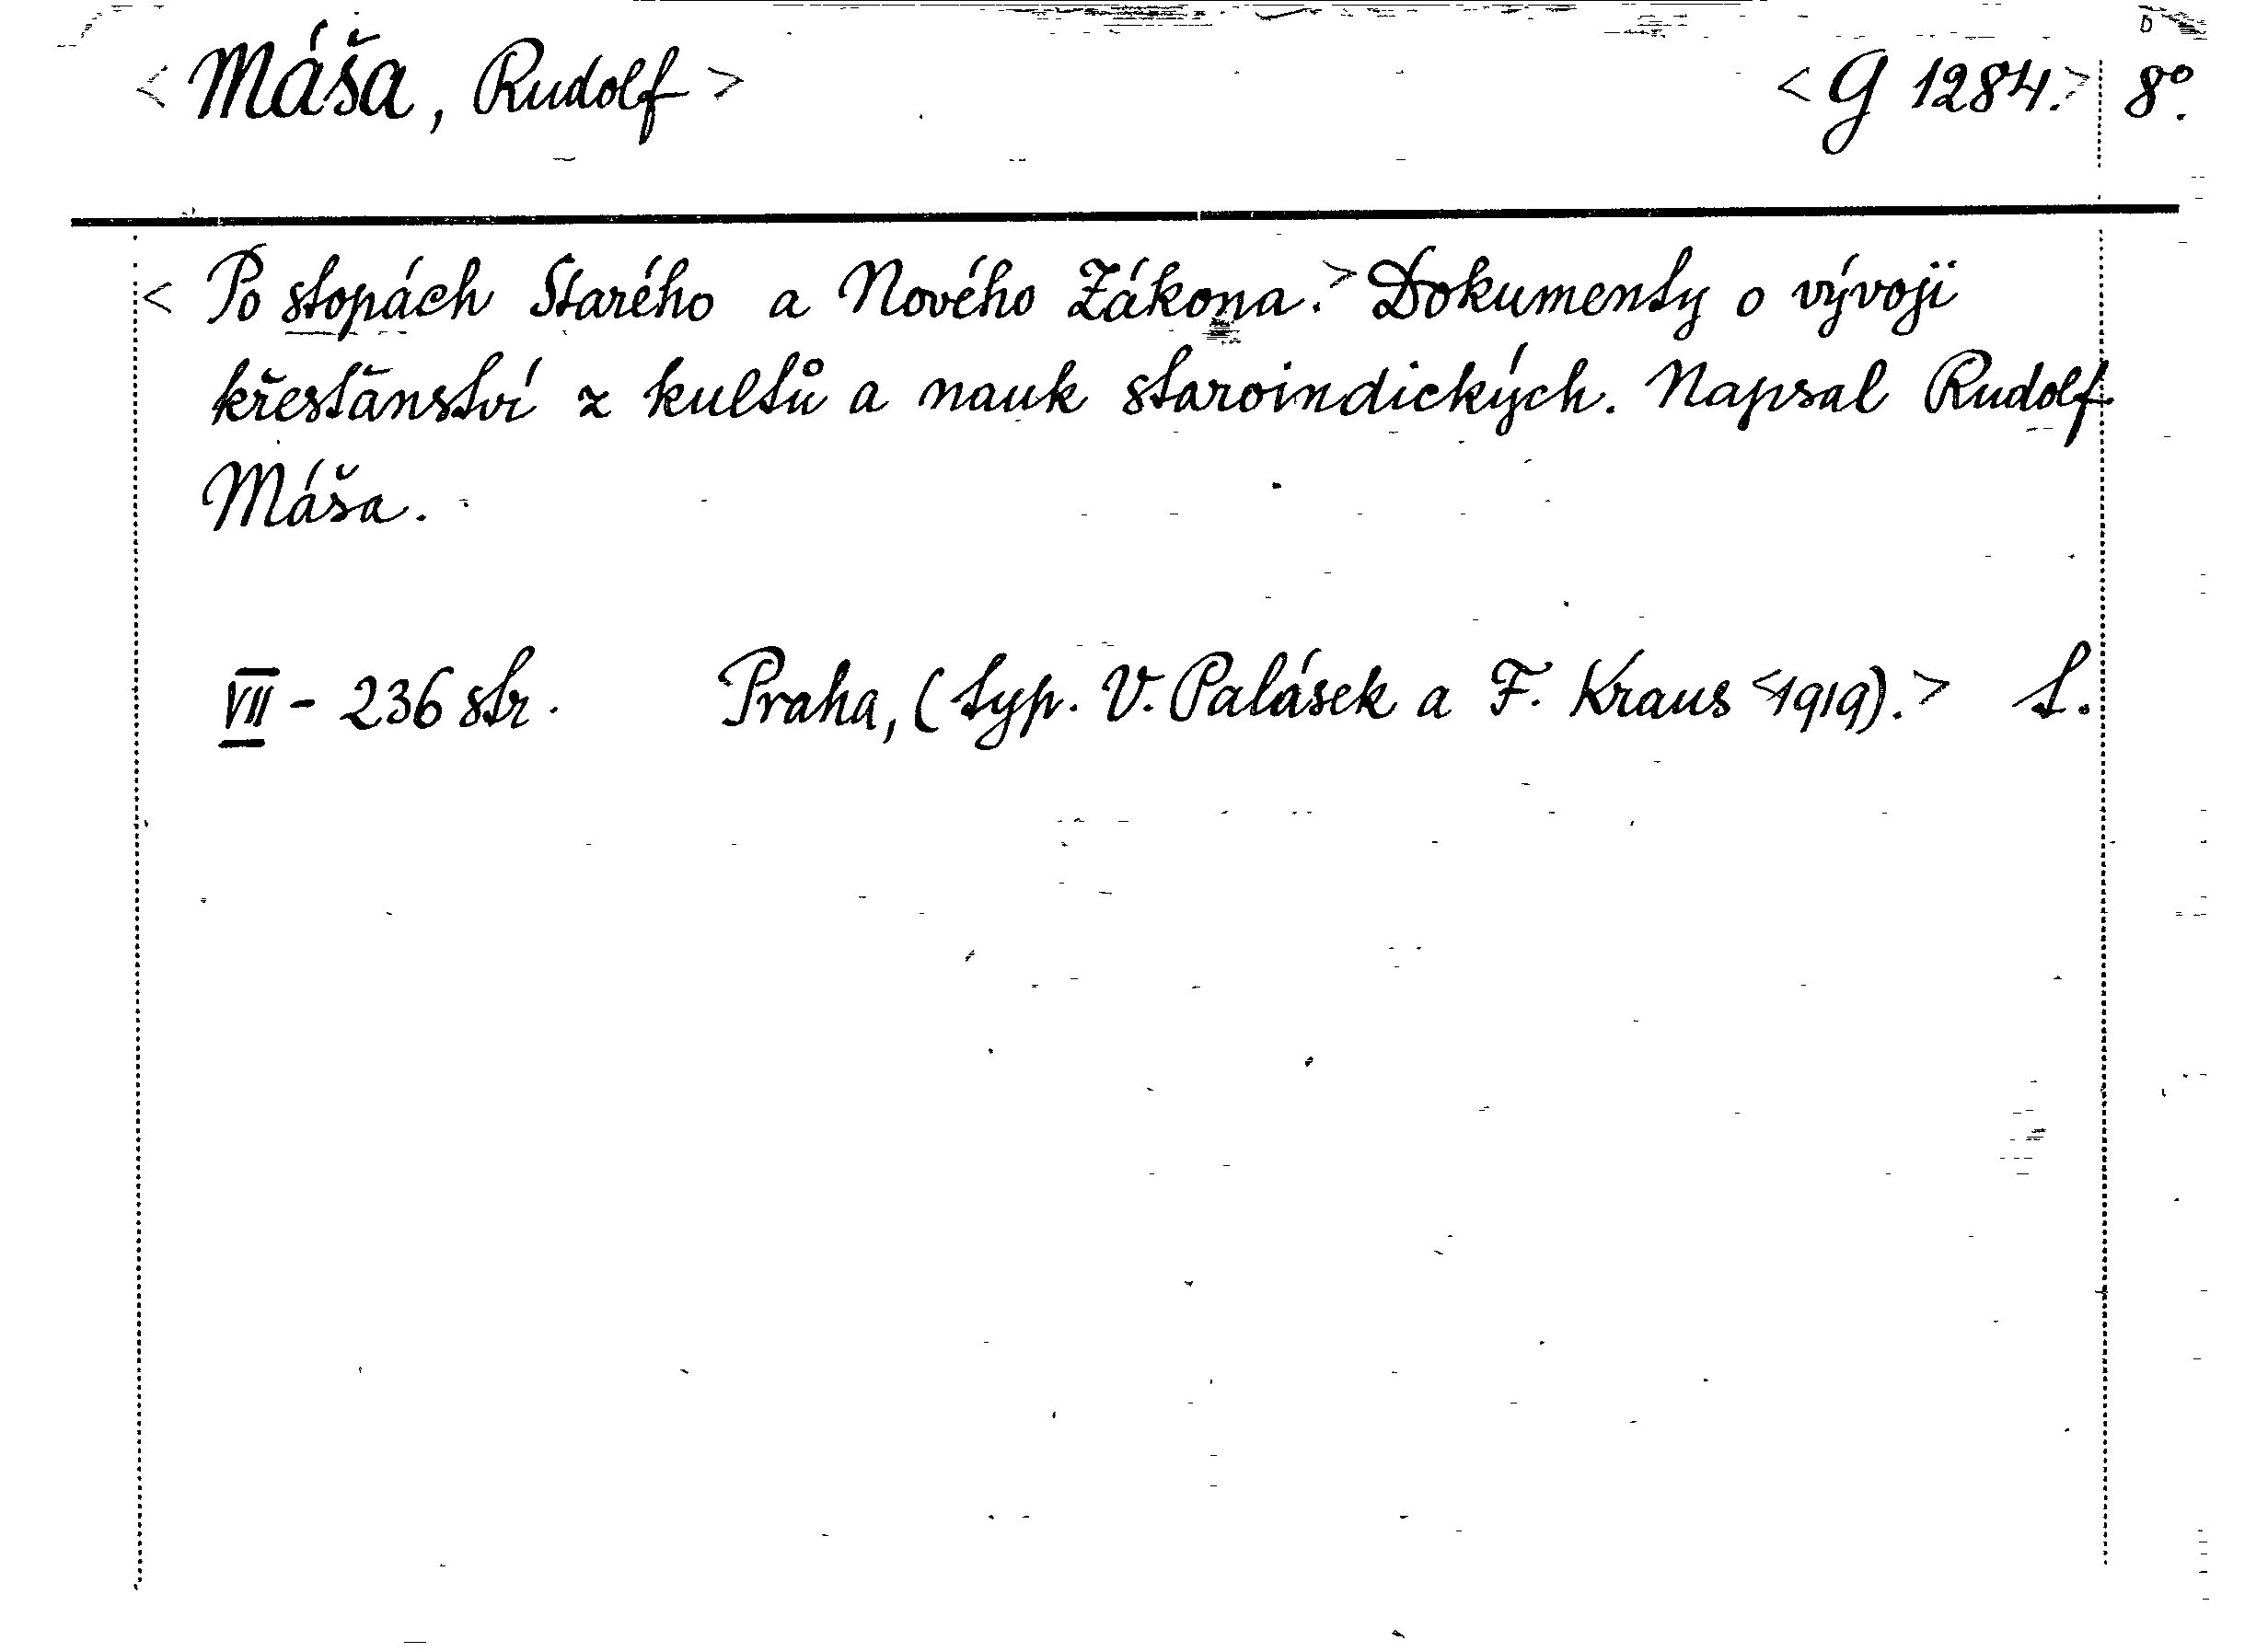 < Máša, Rudolf > < G 1284. > 8°.
< Po stopách Starého a Nového Zákona. > Dokumenty o vývoji
křesťanství z kultů a nauk staroindických. Napsal Rudolf
Máša.
VII - 236 str. Praha, (typ. V. Palásek a F. Kraus <1919). >